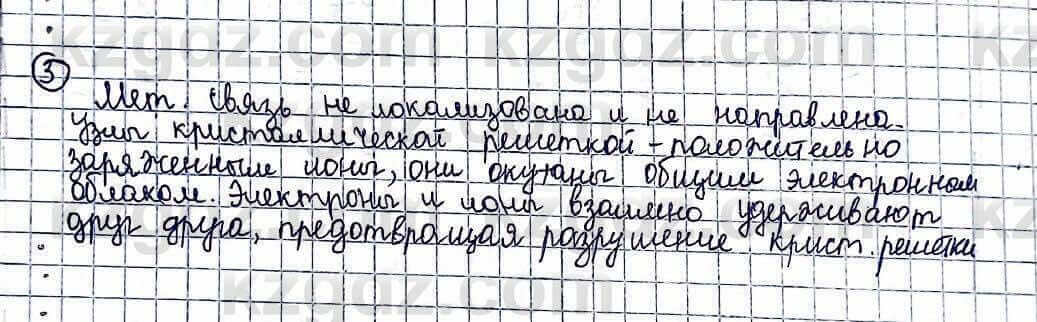 ③
Мет. связь не локализована и не направлена.
Узлы кристаллической решеткой – положительно
заряженные ионы, они окутаны общим электронным
облаком. Электроны и ионы взаимно удерживают
друг друга, предотвращая разрушение крист. решётки
kzgdz.com